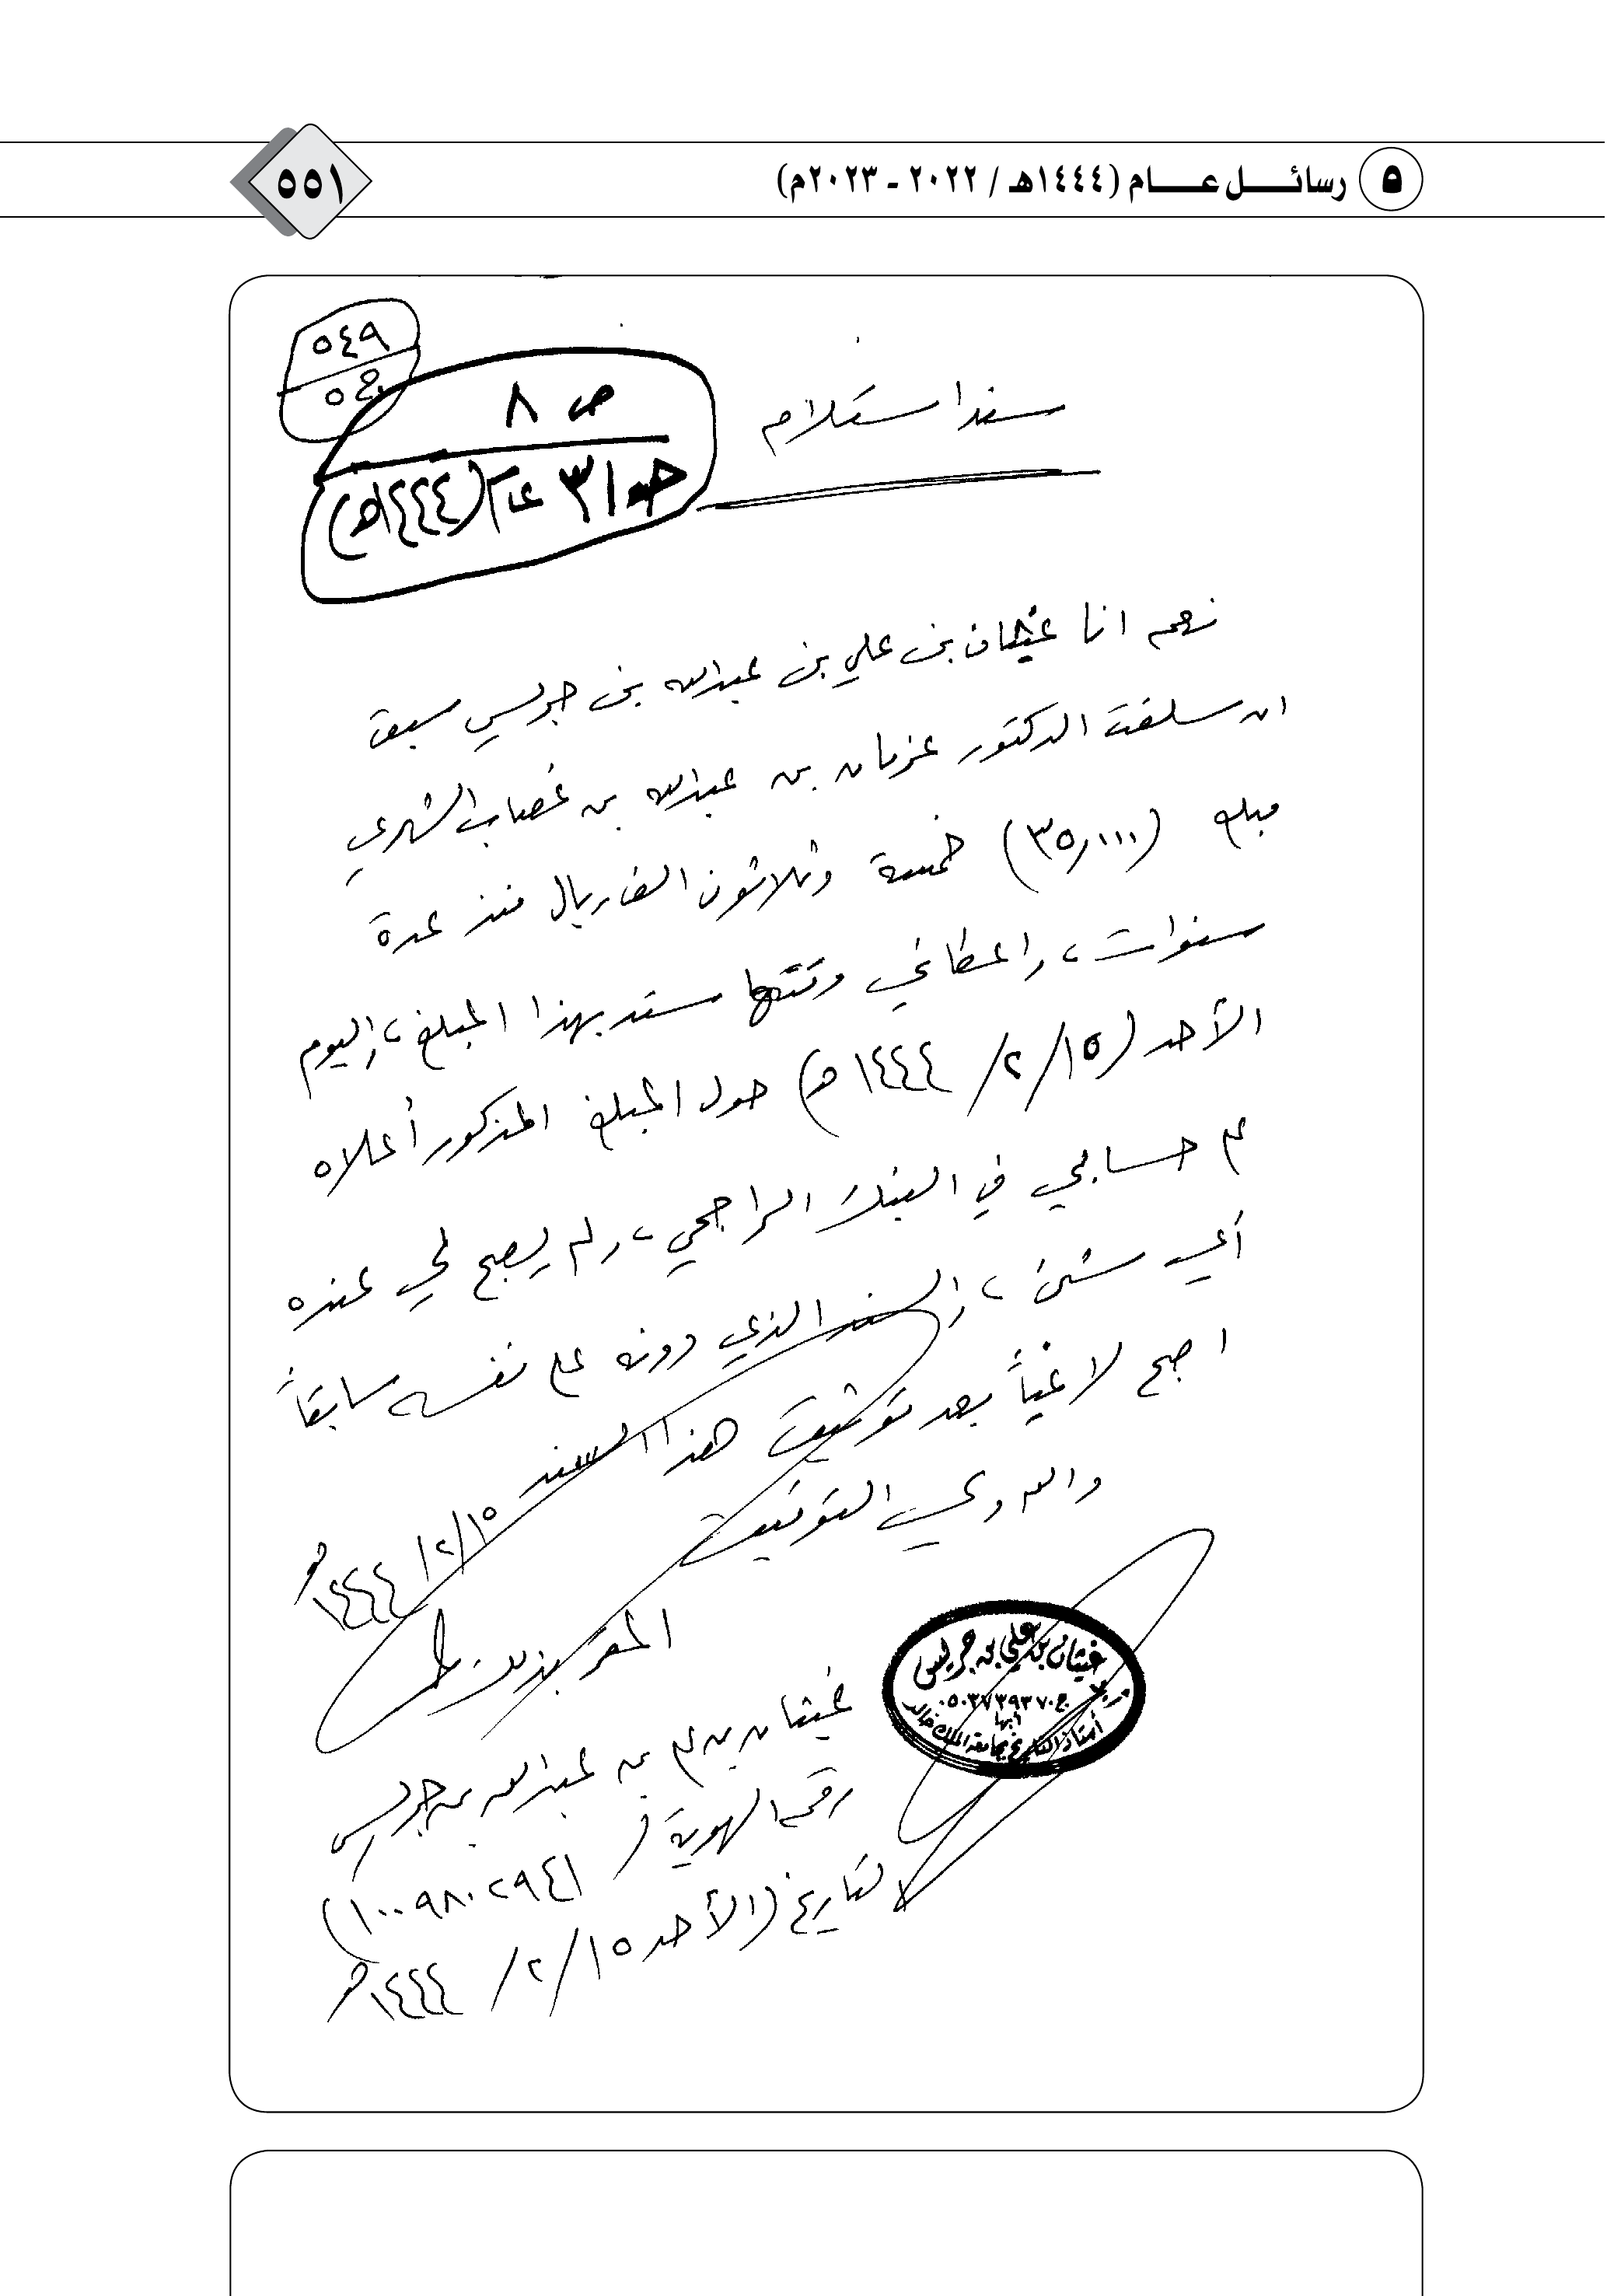 ٥ رسائل عام (١٤٤٤هـ / ٢٠٢٢ - ٢٠٢٣م)
٥٥١
٥٤٩
ص ٨
جـ ٣١ عام (١٤٤٤هـ)
سند استلام
نعم انا غيثان بن علي بن عبدالله بن جريس سبق
ان سلفت الدكتور عزمان بن عبدالله بن غصاب الشهري
مبلغ (٣٥,٠٠٠) خمسة وثلاثون الف ريال منذ عدة
سنوات، واعطاني وقتها سند بهذا المبلغ، واليوم
الأحد (١٥/٢/١٤٤٤هـ) حول المبلغ المذكور أعلاه
لي حسابي في البنك الراجحي، ولم يصبح لي عنده
أي شئ، والسند الذي دونه على نفسه سابقاً
اصبح لاغياً بعد توثيق هذا السند ١٥/٢/١٤٤٤هـ
والله ولي التوفيق
المقر بذلك
غيثان بن علي بن عبدالله بن جريس
رقم الهوية (١٠٠٩٨٠٢٩٤١)
التاريخ (الأحد ١٥/٢/١٤٤٤هـ
غيثان بن علي بن جريس
ج ٠٥٠٣٧٣٩٣٧٠
أبها
أستاذ التاريخ بجامعة الملك خالد